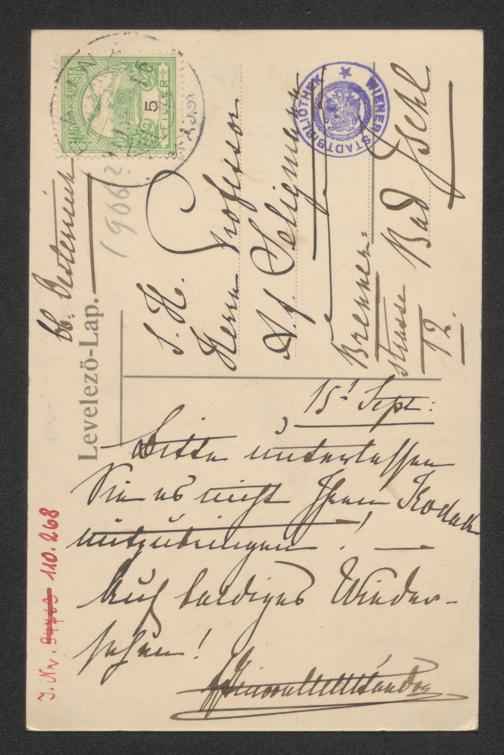 5
FILLER
WIENER STADTBIBLIOTHEK
1906
Ob. Österreich
Levelező-Lap.
S. H.
Herrn Professor
A. F. Seligmann
Brenner-
strasse 12.
Bad Ischl
15t Sept:
Bitte unterlassen
Sie es nicht Ihren Kodak
mitzubringen! —
Auf baldiges Wieder-
sehen!
J. Nr. 110.268